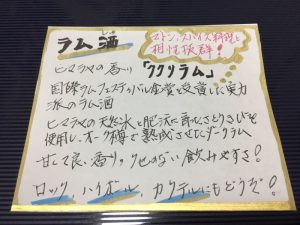 ラム酒
しゅ
エトン、スパイス料理と
相性抜群!
ヒマラヤの香り
「ククリラム」
国際ラムフェスティバル金賞を受賞した実力
派のラム酒
ヒマラヤの天然水と肥沃に育ったさとうきびを
使用し、オーク樽で熟成させたダークラム
甘くて良い香り クセのない飲みやすさ!
ロック、ハイボール、カクテルにもどうぞ!